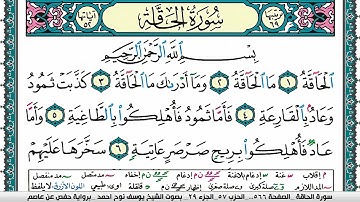 سُورَةُ الحَاقَّةِ
ترتيبها ٦٩
آياتها ٥٢
بِسْمِ اللَّهِ الرَّحْمَٰنِ الرَّحِيمِ
الْحَاقَّةُ ١ مَا الْحَاقَّةُ ٢ وَمَا أَدْرَىٰكَ مَا الْحَاقَّةُ ٣ كَذَّبَتْ ثَمُودُ
وَعَادٌ بِالْقَارِعَةِ ٤ فَأَمَّا ثَمُودُ فَأُهْلِكُوا بِالطَّاغِيَةِ ٥ وَأَمَّا
عَادٌ فَأُهْلِكُوا بِرِيحٍ صَرْصَرٍ عَاتِيَةٍ ٦ سَخَّرَهَا عَلَيْهِمْ
سورة الحاقة - الصفحة ٥٦٦ - الحزب ٥٧ الجزء ٢٩ بصوت الشيخ يوسف نوح احمد - برواية حفص عن عاصم